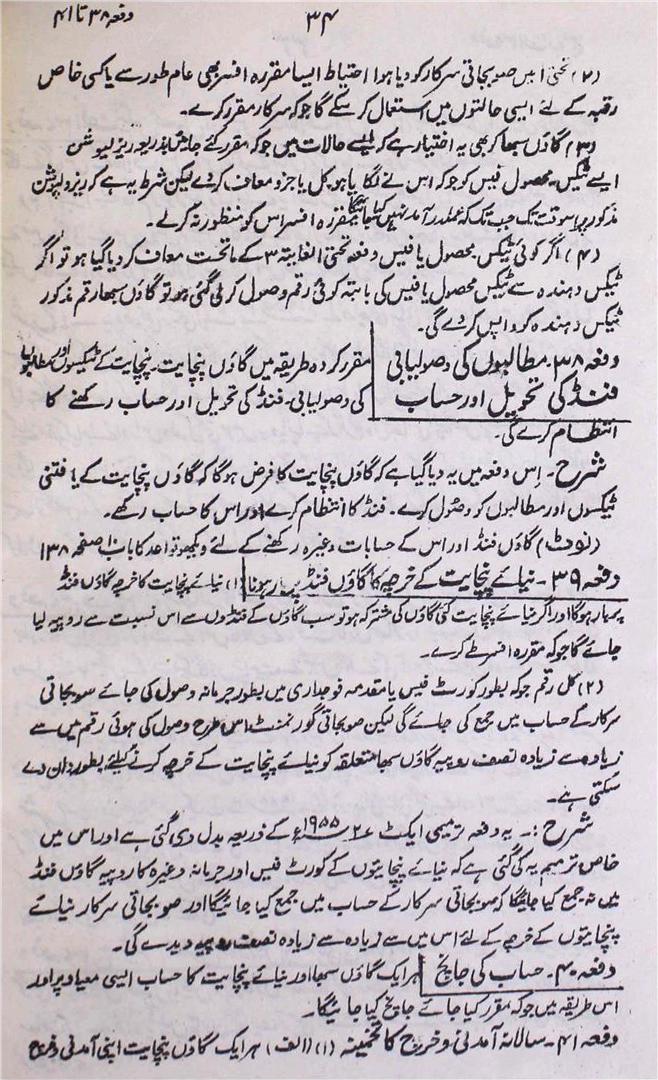 دفعہ ۳۸ تا ۴۱
۳۴
(۲) تحتی الف میں صوبجاتی سرکار کو دیا ہوا احتیاط ایسا مقررہ افسر بھی عام طور سے یا کسی خاص
رقبہ کے لئے ایسی حالتوں میں استعمال کر سکے گا جو کہ سرکار مقرر کرے۔
(۳) گاؤں سبھا کو بھی یہ اختیار ہے کہ ایسے حالات میں جو کہ مقرر کئے جائیں بذریعہ ریزلیوشن
ایسے ٹیکس۔ محصول فیس کو جو کہ اس نے لگایا ہو کل یا جزو معاف کر دے لیکن شرط یہ ہے کہ ریزولیوشن
مذکور پر اسوقت تک جب تک کہ عملدرآمد نہیں کیا جائیگا مقررہ افسر اس کو منظور نہ کرلے۔
(۴) اگر کوئی ٹیکس محصول یا فیس دفعہ تحتی الغایتہ ۳ کے ماتحت معاف کر دیا گیا ہو تو اگر
ٹیکس دہندہ سے ٹیکس محصول یا فیس کی بابتہ کوئی رقم وصول کر لی گئی ہو تو گاؤں سبھا رقم مذکور
ٹیکس دہندہ کو واپس کر دے گی۔
دفعہ ۳۸۔ مطالبوں کی وصولیابی مقرر کردہ طریقہ میں گاؤں پنچایت۔ پنچایت کے ٹیکسوں اور مطالبوں
فنڈ کی تحویل اور حساب کی وصولیابی۔ فنڈ کی تحویل اور حساب رکھنے کا
انتظام کرے گی۔
شرح۔ اس دفعہ میں یہ دیا گیا ہے کہ گاؤں پنچایت کا فرض ہوگا کہ گاؤں پنچایت کے یافتنی
ٹیکسوں اور مطالبوں کو وصول کرے۔ فنڈ کا انتظام کرے اور اس کا حساب رکھے۔
(نوٹ) گاؤں فنڈ اور اس کے حسابات وغیرہ رکھنے کے لئے دیکھو قواعد کا باب ۱۰ صفحہ ۱۳۸
دفعہ ۳۹۔ نیائے پنچایت کے خرچہ کا گاؤں فنڈ پر بار ہونا (۱) نیائے پنچایت کا خرچہ گاؤں فنڈ
پر بار ہوگا اور اگر نیائے پنچایت کئی گاؤں کی مشترکہ ہو تو سب گاؤں کے فنڈوں سے اس نسبت سے روپیہ لیا
جائے گا جو کہ مقررہ افسر طے کرے۔
(۲) کل رقم جو کہ بطور کورٹ فیس یا مقدمہ فوجداری میں بطور جرمانہ وصول کی جائے صوبجاتی
سرکار کے حساب میں جمع کی جائے گی لیکن صوبجاتی گورنمنٹ اس طرح وصول کی ہوئی رقم میں سے
زیادہ سے زیادہ نصف روپیہ گاؤں سبھا متعلقہ کو نیائے پنچایت کے خرچہ کرنے کیلئے بطور دان دے
سکتی ہے۔
شرح :۔ یہ دفعہ ترمیمی ایکٹ ۲ ۱۹۵۵ء کے ذریعہ بدل دی گئی ہے اور اس میں
خاص ترمیم یہ کی گئی ہے کہ نیائے پنچایتوں کے کورٹ فیس اور جرمانہ وغیرہ کا روپیہ گاؤں فنڈ
میں نہ جمع کیا جائیگا کہ صوبجاتی سرکار کے حساب میں جمع کیا جائیگا اور صوبجاتی سرکار نیائے
پنچایتوں کے خرچہ کے لئے اس میں سے زیادہ سے زیادہ نصف روپیہ دیدے گی۔
دفعہ ۴۰۔ حساب کی جانچ ہر ایک گاؤں سبھا اور نیائے پنچایت کا حساب ایسی میعاد پر اور
اس طریقہ میں جو کہ مقرر کیا جائے جانچ کیا جائیگا۔
دفعہ ۴۱۔ سالانہ آمدنی و خرچ کا تخمینہ (۱) (الف) ہر ایک گاؤں پنچایت اپنی آمدنی و خرچ